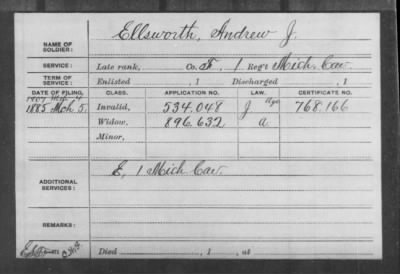 NAME OF SOLDIER: Ellsworth, Andrew J.
SERVICE: Late rank, Co. F, 1 Reg't Mich. Cav.
TERM OF SERVICE: Enlisted , 1 Discharged , 1
DATE OF FILING. CLASS. APPLICATION NO. LAW. CERTIFICATE NO.
1885 Mch 5. Invalid, 534.048 J 768.166
Widow, 896.632 a.
Minor,
ADDITIONAL SERVICES: E, 1 Mich Cav.
REMARKS:
Died , 1 , at